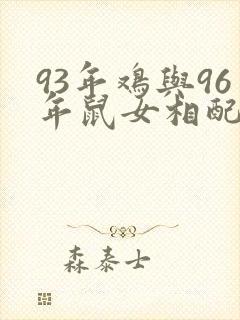 93年鸡與96
年鼠女相配
森泰士